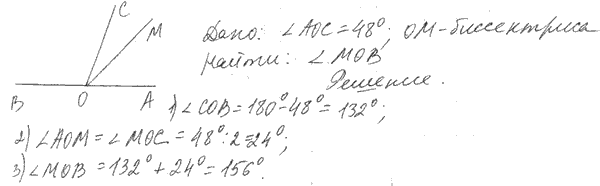 C
M
B O A
Дано: ∠AOC = 48°; OM - биссектриса
Найти: ∠MOB
Решение.
1) ∠COB = 180° - 48° = 132°;
2) ∠AOM = ∠MOC = 48°: 2 = 24°;
3) ∠MOB = 132° + 24° = 156°.